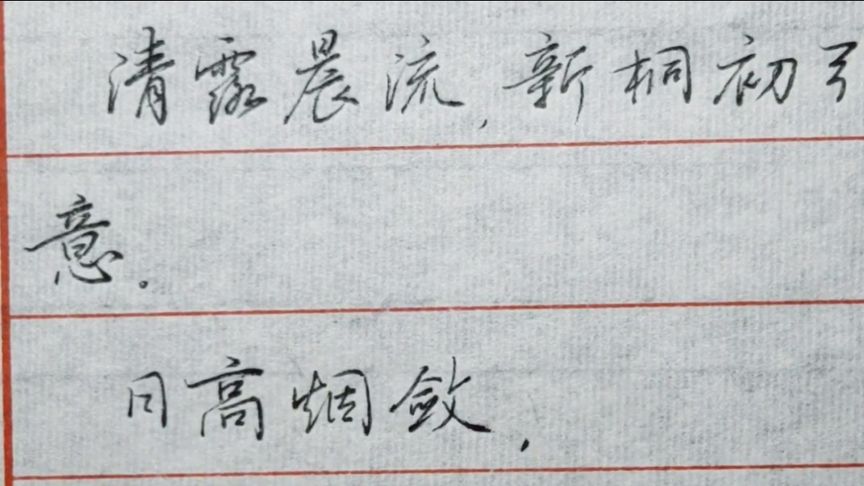 清露晨流,新桐初
意。
日高烟敛,